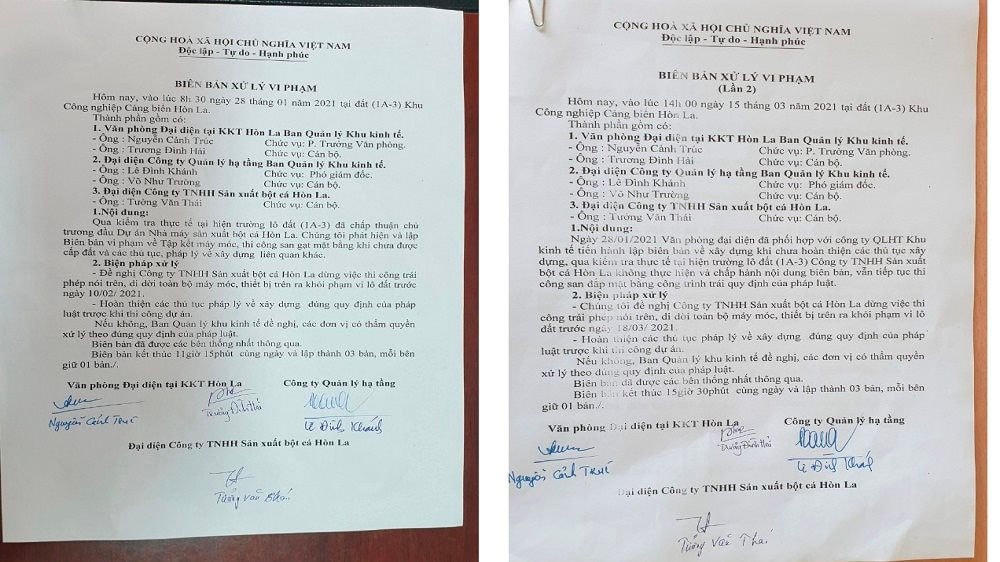 CỘNG HOÀ XÃ HỘI CHỦ NGHĨA VIỆT NAM
Độc lập - Tự do - Hạnh phúc
BIÊN BẢN XỬ LÝ VI PHẠM
Hôm nay, vào lúc 8h 30 ngày 28 tháng 01 năm 2021 tại đất (1A-3) Khu
Công nghiệp Cảng biển Hòn La.
Thành phần gồm có:
1. Văn phòng Đại diện tại KKT Hòn La Ban Quản lý Khu kinh tế.
- Ông : Nguyễn Cảnh Trúc Chức vụ: P. Trưởng Văn phòng.
- Ông : Trương Đình Hải Chức vụ: Cán bộ.
2. Đại diện Công ty Quản lý hạ tầng Ban Quản lý Khu kinh tế.
- Ông : Lê Đình Khánh Chức vụ: Phó giám đốc.
- Ông : Võ Như Trường Chức vụ: Cán bộ.
3. Đại diện Công ty TNHH Sản xuất bột cá Hòn La.
- Ông : Tưởng Văn Thái Chức vụ: Cán bộ.
1.Nội dung:
Qua kiểm tra thực tế tại hiện trường lô đất (1A-3) đã chấp thuận chủ
trương đầu Dự án Nhà máy sản xuất bột cá Hòn La. Chúng tôi phát hiện và lập
Biên bản vi phạm về Tập kết máy móc, thi công san gạt mặt bằng khi chưa được
cấp đất và các thủ tục, pháp lý về xây dựng liên quan khác.
2. Biện pháp xử lý
- Đề nghị Công ty TNHH Sản xuất bột cá Hòn La dừng việc thi công trái
phép nói trên, di dời toàn bộ máy móc, thiết bị trên ra khỏi phạm vi lô đất trước
ngày 10/02/ 2021.
- Hoàn thiện các thủ tục pháp lý về xây dựng đúng quy định của pháp
luật trược khi thi công dự án.
Nếu không, Ban Quản lý khu kinh tế đề nghị, các đơn vị có thẩm quyền
xử lý theo đúng quy định của pháp luật.
Biên bản đã được các bên thống nhất thông qua.
Biên bản kết thúc 11giờ 15phút cùng ngày và lập thành 03 bản, mỗi bên
giữ 01 bản./.
Văn phòng Đại diện tại KKT Hòn La Công ty Quản lý hạ tầng
Trương Đình Hải
Nguyễn Cảnh Trúc Lê Đình Khánh
Đại diện Công ty TNHH Sản xuất bột cá Hòn La
Tưởng Văn Thái
CỘNG HOÀ XÃ HỘI CHỦ NGHĨA VIỆT NAM
Độc lập - Tự do - Hạnh phúc
BIÊN BẢN XỬ LÝ VI PHẠM
(Lần 2)
Hôm nay, vào lúc 14h 00 ngày 15 tháng 03 năm 2021 tại đất (1A-3) Khu
Công nghiệp Cảng biển Hòn La.
Thành phần gồm có:
1. Văn phòng Đại diện tại KKT Hòn La Ban Quản lý Khu kinh tế.
- Ông : Nguyễn Cảnh Trúc Chức vụ: P. Trưởng Văn phòng.
- Ông : Trương Đình Hải Chức vụ: Cán bộ.
2. Đại diện Công ty Quản lý hạ tầng Ban Quản lý Khu kinh tế.
- Ông : Lê Đình Khánh Chức vụ: Phó giám đốc.
- Ông : Võ Như Trường Chức vụ: Cán bộ.
3. Đại diện Công ty TNHH Sản xuất bột cá Hòn La.
- Ông : Tưởng Văn Thái Chức vụ: Cán bộ.
1.Nội dung:
Ngày 28/01/2021 Văn phòng đại diện đã phối hợp với công ty QLHT Khu
kinh tế tiến hành lập biên bản về xây dựng khi chưa hoàn thiện các thủ tục xây
dựng, qua kiểm tra thực tế tại hiện trường lô đất (1A-3) Công ty TNHH Sản xuất
bột cá Hòn La không thực hiện và chấp hành nội dung biên bản, vẫn tiếp tục thi
công san đắp mặt bằng công trình trái quy định của pháp luật.
2. Biện pháp xử lý
- Chúng tôi đề nghị Công ty TNHH Sản xuất bột cá Hòn La dừng việc thi
công trái phép nói trên, di dời toàn bộ máy móc, thiết bị trên ra khỏi phạm vi lô
đất trước ngày 18/03/ 2021.
- Hoàn thiện các thủ tục pháp lý về xây dựng đúng quy định của pháp
luật trược khi thi công dự án.
Nếu không, Ban Quản lý khu kinh tế đề nghị, các đơn vị có thẩm quyền
xử lý theo đúng quy định của pháp luật.
Biên bản đã được các bên thống nhất thông qua.
Biên bản kết thúc 15giờ 30phút cùng ngày và lập thành 03 bản, mỗi bên
giữ 01 bản./.
Văn phòng Đại diện tại KKT Hòn La Công ty Quản lý hạ tầng
Trương Đình Hải
Nguyễn Cảnh Trúc Lê Đình Khánh
Đại diện Công ty TNHH Sản xuất bột cá Hòn La
Tưởng Văn Thái